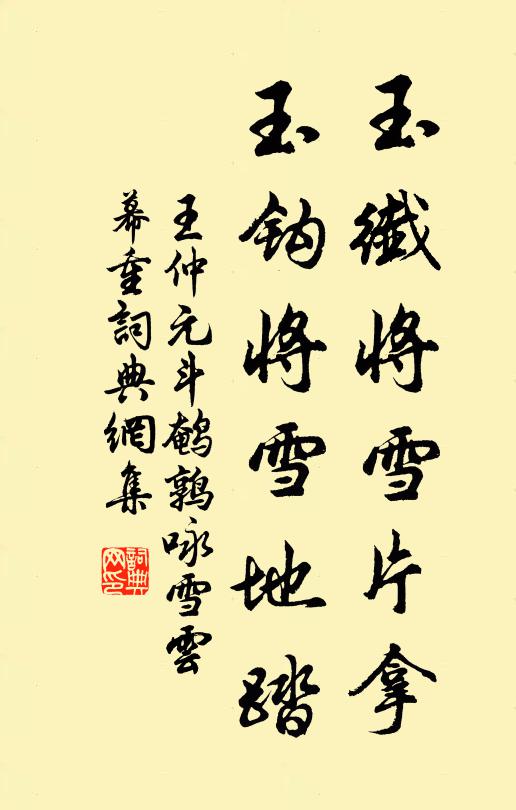 玉纖將雪片拿
玉鈎將雪地踏
王仲元斗鵪鶉咏雪雲
幕重詞典網集
詞典網印